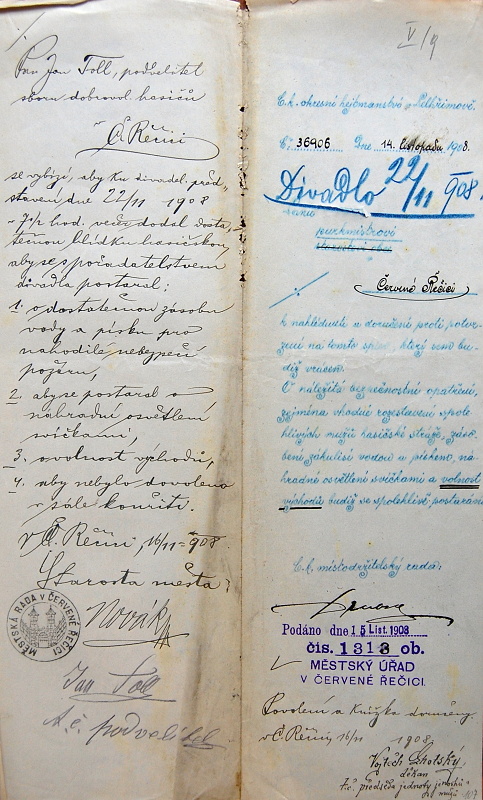 Pan Jan Toll, podvelitel
sboru dobrovol. hasičů
v Č. Řečici
se vybízí, aby ku divadel. před-
stavení dne 22/11 1908
v 7½ hod. večer dodal dosta-
tečnou hlídku hasičskou,
aby se s pořadatelstvem
divadla postaral:
1. o dostatečnou zásobu
vody a písku pro
nahodilé nebezpečí
požáru,
2. aby se postaral o
náhradní osvětlení
svíčkami,
3. o volnost východů,
4. aby nebylo dovoleno
v sále kouřiti.
v Č. Řečici, 16/11 908.
Starosta města:
Novák
MĚSTSKÁ RADA V ČERVENÉ ŘEČICI
Jan Toll
t. č. podvelitel
V/9
C. k. okresní hejtmanství v Pelhřimově.
Č. 36906 Dne 14. listopadu 1908.
Divadlo 22/11 908.
purkmistrovi
Červené Řečici
k nahlédnutí a doručení proti potvr-
zení na tomto spise, který sem bu-
diž vrácen.
O náležitá bezpečnostní opatření,
zejména vhodné rozestavení spole-
hlivých mužů hasičské stráže, záso-
bení zákulisí vodou a pískem, ná-
hradné osvětlení svíčkami a volnost
východů budiž se spolehlivě postaráno.
C. k. místodržitelský rada:
Podáno dne 15 List. 1908
čís. 1313 ob.
MĚSTSKÝ ÚŘAD
V ČERVENÉ ŘEČICI.
Povolení a Knížka doručeny.
v Č. Řečici 16/11
1908.
Vojtěch
děkan
t. č. předseda jednoty
mužů 107